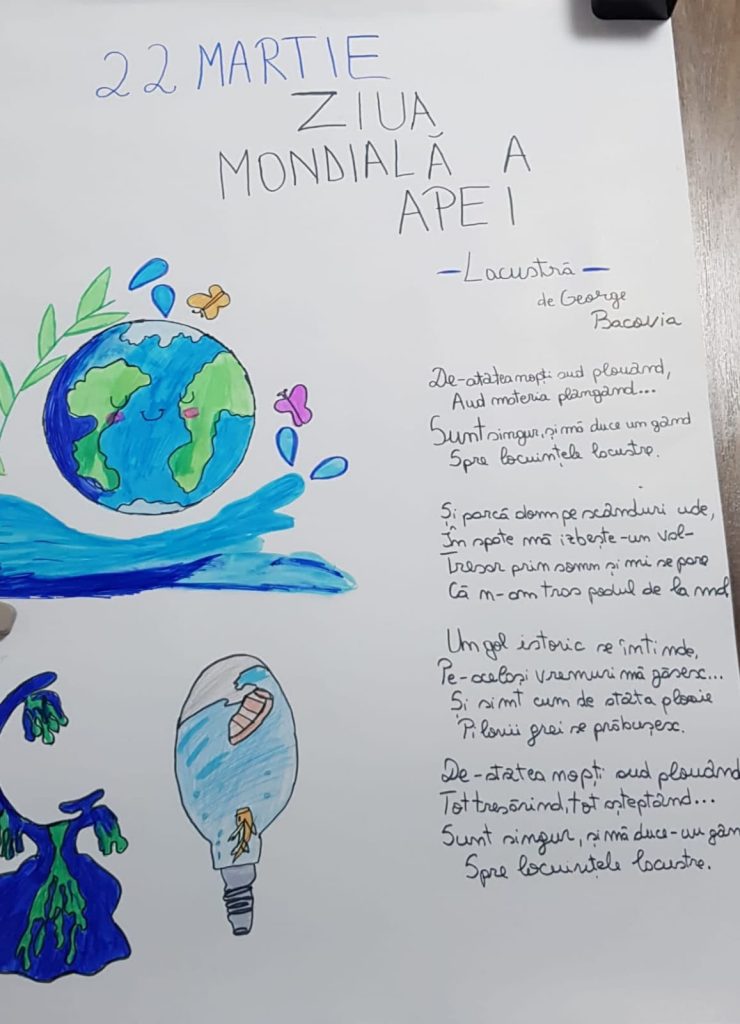 22 MARTIE
ZIUA
MONDIALĂ A
APEI
– Lacustră –
de George
Bacovia
De-atâtea nopți aud plouând,
Aud materia plangând...
Sunt singur, și mă duce un gând
Spre locuințele lacustre.
Și parcă dorm pe scânduri ude,
În spate mă izbește-un val-
Tresar prin somn și mi se pare
Că n-am tras podul de la mal.
Un gol istoric se întinde,
Pe-aceleași vremuri mă găsesc...
Și simt cum de atâta ploaie
Pilonii grei se prăbușesc.
De-atâtea nopți aud plouând
Tot tresărind, tot așteptând...
Sunt singur, și mă duce-un gân
Spre locuințele lacustre.